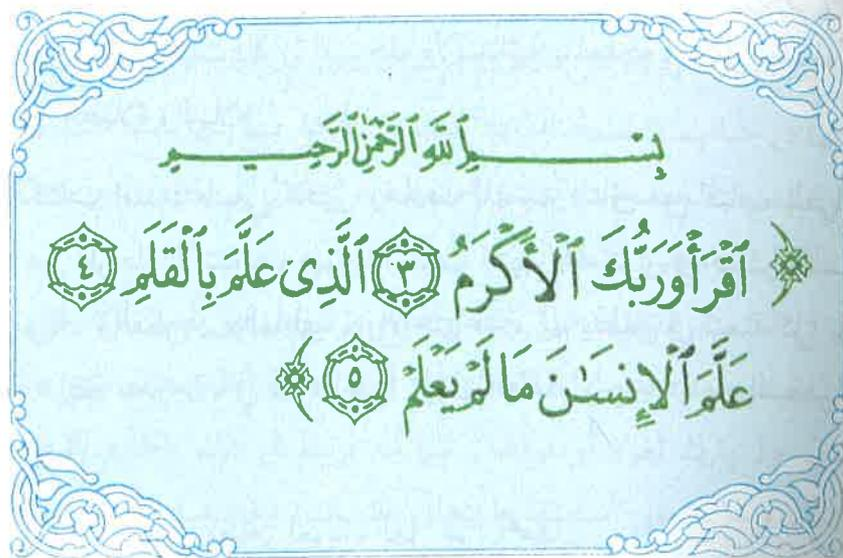 بِسْمِ ٱللَّهِ ٱلرَّحْمَٰنِ ٱلرَّحِيمِ
﴿ ٱقْرَأْ وَرَبُّكَ ٱلْأَكْرَمُ ٣ ٱلَّذِى عَلَّمَ بِٱلْقَلَمِ ٤
عَلَّمَ ٱلْإِنسَـٰنَ مَا لَمْ يَعْلَمْ ٥ ﴾